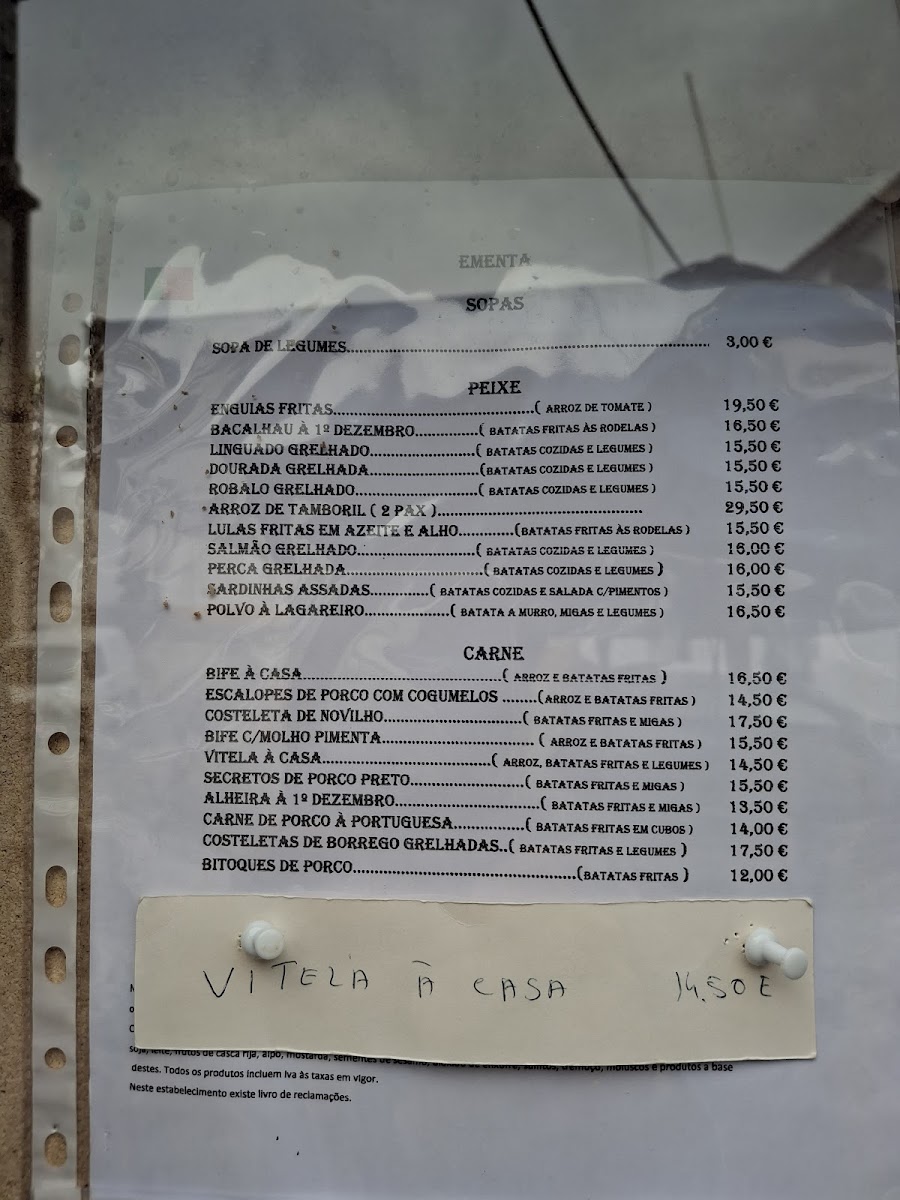 EMENTA
SOPAS
SOPA DE LEGUMES........................................................................................ 3,00 €
PEIXE
ENGUIAS FRITAS................................................( ARROZ DE TOMATE ) 19,50 €
BACALHAU À 1º DEZEMBRO...............( BATATAS FRITAS ÀS RODELAS ) 16,50 €
LINGUADO GRELHADO.........................( BATATAS COZIDAS E LEGUMES ) 15,50 €
DOURADA GRELHADA..........................(BATATAS COZIDAS E LEGUMES ) 15,50 €
ROBALO GRELHADO.............................( BATATAS COZIDAS E LEGUMES ) 15,50 €
ARROZ DE TAMBORIL ( 2 PAX )................................................. 29,50 €
LULAS FRITAS EM AZEITE E ALHO.............(BATATAS FRITAS ÀS RODELAS ) 15,50 €
SALMÃO GRELHADO............................( BATATAS COZIDAS E LEGUMES ) 16,00 €
PERCA GRELHADA.................................( BATATAS COZIDAS E LEGUMES ) 16,00 €
SARDINHAS ASSADAS..............( BATATAS COZIDAS E SALADA C/PIMENTOS ) 15,50 €
POLVO À LAGAREIRO....................( BATATA A MURRO, MIGAS E LEGUMES ) 16,50 €
CARNE
BIFE À CASA................................................( ARROZ E BATATAS FRITAS ) 16,50 €
ESCALOPES DE PORCO COM COGUMELOS ........(ARROZ E BATATAS FRITAS ) 14,50 €
COSTELETA DE NOVILHO.................................( BATATAS FRITAS E MIGAS ) 17,50 €
BIFE C/MOLHO PIMENTA.................................... ( ARROZ E BATATAS FRITAS ) 15,50 €
VITELA À CASA........................................( ARROZ, BATATAS FRITAS E LEGUMES ) 14,50 €
SECRETOS DE PORCO PRETO...........................( BATATAS FRITAS E MIGAS ) 15,50 €
ALHEIRA À 1º DEZEMBRO...................................( BATATAS FRITAS E MIGAS ) 13,50 €
CARNE DE PORCO À PORTUGUESA.................( BATATAS FRITAS EM CUBOS ) 14,00 €
COSTELETAS DE BORREGO GRELHADAS..( BATATAS FRITAS E LEGUMES ) 17,50 €
BITOQUES DE PORCO.....................................................(BATATAS FRITAS ) 12,00 €
VITELA À CASA 14.50 E
soja, leite, frutos de casca rija, aipo, mostarda, sementes de moluscos e produtos à base
destes. Todos os produtos incluem Iva às taxas em vigor.
Neste estabelecimento existe livro de reclamações.